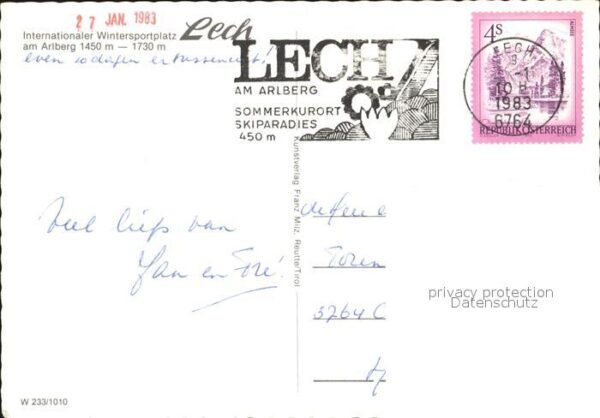 27 JAN. 1983
Internationaler Wintersportplatz Lech
am Arlberg 1450 m — 1730 m
even 10 dagen er tussenuit!
LECH
AM ARLBERG
SOMMERKURORT
SKIPARADIES
450 m
4S
REPUBLIK ÖSTERREICH
LECH
10
1983
6764
Veel liefs van
Jan en
Kunstverlag Franz Milz, Reutte/Tirol
3264 C
privacy protection
Datenschutz
W 233/1010